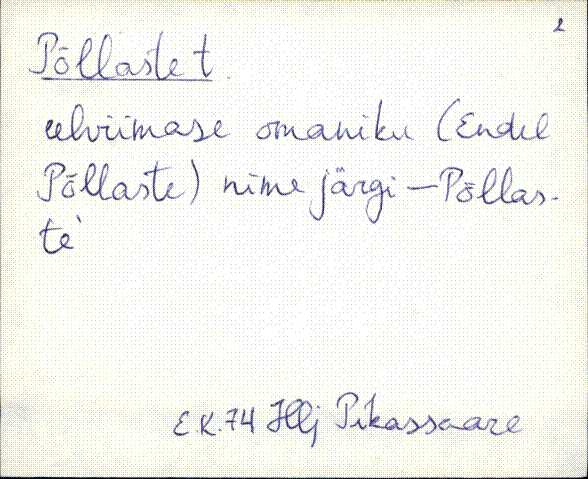 2
Põllaste t.
eelviimase omaniku (Endel
Põllaste) nime järgi – Põllas-
te`
E.K. 74 Hlj Pikassaare